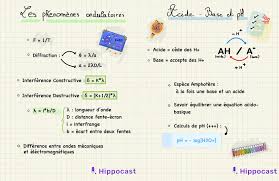 Les phénomènes ondulatoires
F = 1/T
Diffraction :
θ = λ/a
a = 2λD/L
Interférence Constructive δ = K*λ
Interférence Destructive δ = (K+1/2)*λ
λ : longueur d'onde
D : distance fente-écran
i = interfrange
b = écart entre deux fentes
i = λ*D/b
Différence entre ondes mécaniques
et électromagnétiques
Hippocast
Acide - Base et pH
Acide = cède des H+
Base = accepte des H+
AH / A-
Espèce Amphotère :
à la fois une base et un acide
Savoir équilibrer une équation acido-
basique
Calculs de pH (+++) :
pH = - log[H3O+]
Hippocast